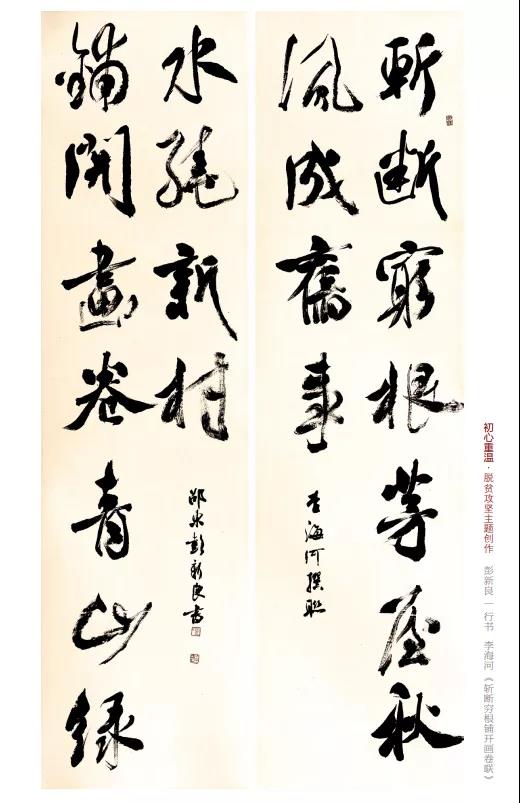 斬斷窮根茅屋秋
風成舊事
李海河撰聯
鋪開畫卷青山綠
水繞新村
邵水彭新良書
初心重温·脱贫攻坚主题创作 彭新良 | 行书 李海河《斩断穷根铺开画卷联》